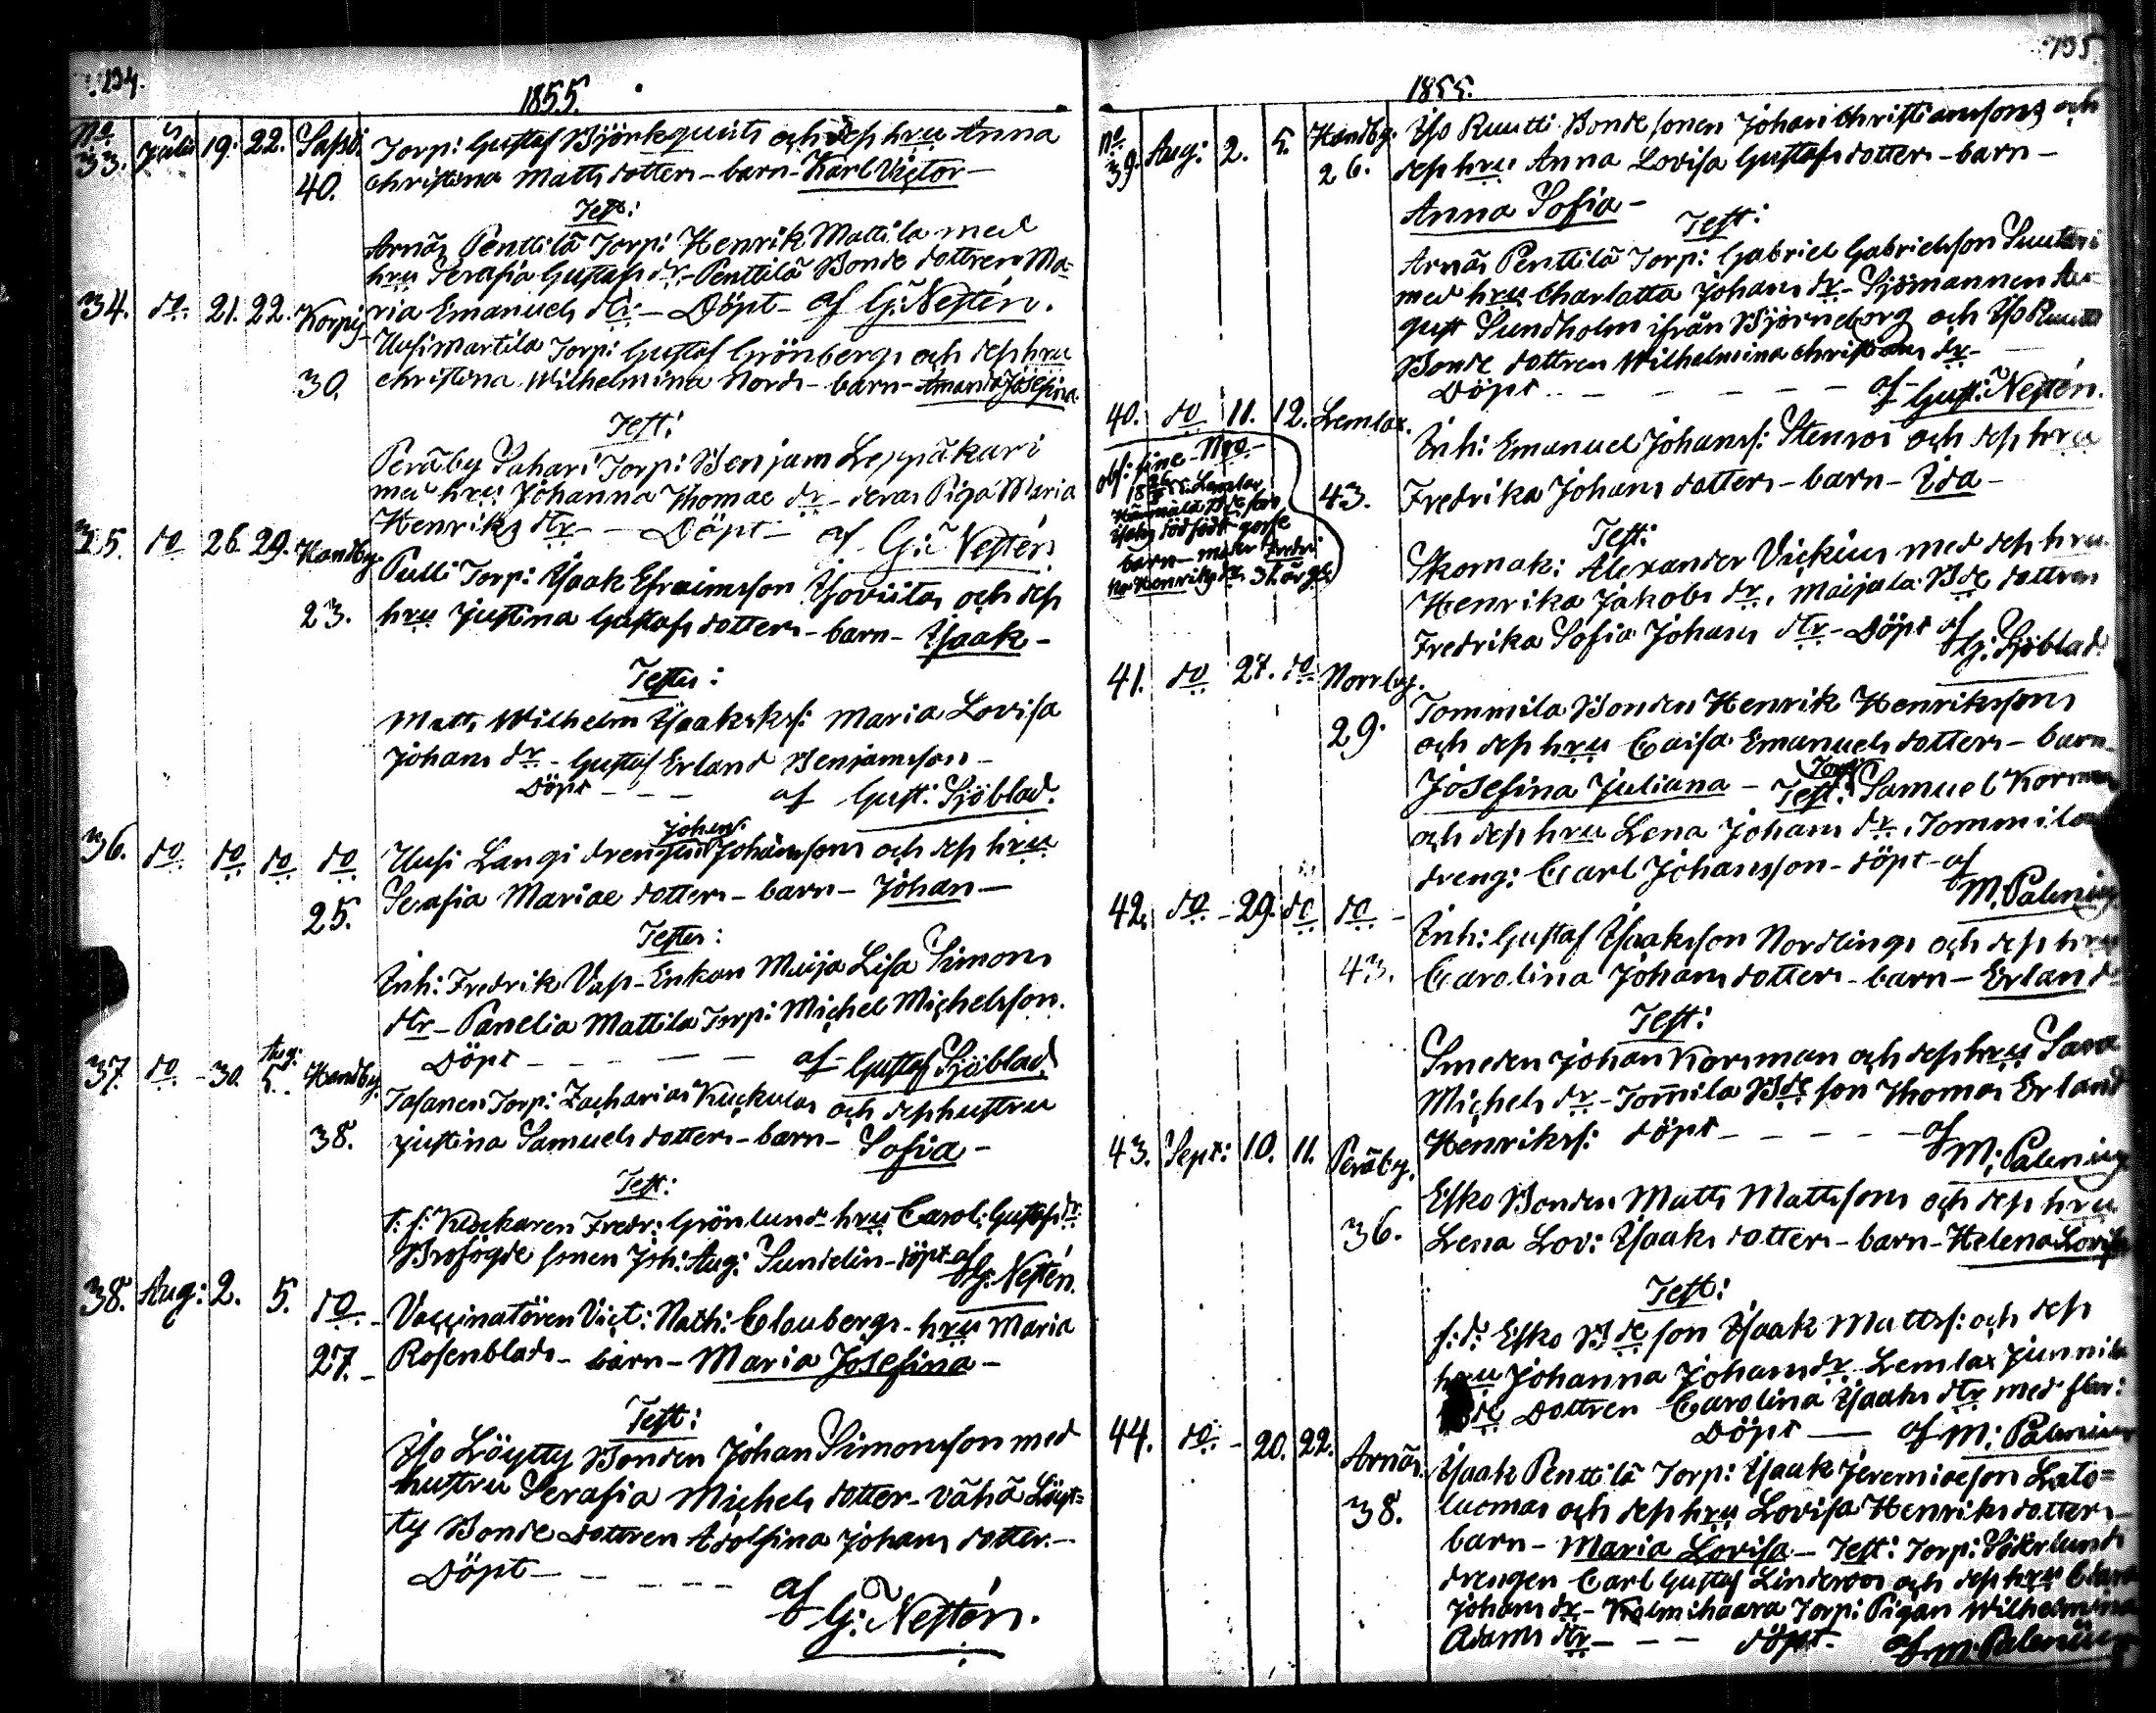 134.
1855.
No
33. Julii 19. 22. Torp: Gustaf Björkqvists och dess hru Anna
40. Christina Matts dotters - barn - Karl Victor -
Test:
Arnäs Penttilä Torp: Henrik Mattila med
hru Serafia Gustafs dr - Penttilä Bonde dottren Ma-
ria Emanuels dtr - Döpt - af G: Nestén.
34. do 21. 22. Uusimartila Torp: Gustaf Grönbergs och dess hru
30. Christina Wilhelmina Nords - barn - Amanda Josefina
Test:
Peräby Sahari Torp: Benjam Leppäkari
med hru Johanna Thomae dr - deras Piga Maria
Henriks dtr - Döpt - af G: Nestén
35. do 26. 29. Handby. Pulli Torp: Isaak Efraimsson Isoviitas och dess
23. hru Justina Gustafs dotters - barn - Isaak -
Testes:
Matts Wilhelm Isaakss: Maria Lovisa
Johans dr - Gustaf Erland Benjamsson -
Döpt - - - af Gust: Sjöblad.
36. do do do do Uusi Langi drengen Johan Johansson och dess hru
25. Serafia Mariae dotters - barn - Johan -
Testes:
Inh: Fredrik Vass - Enkan Maija Lisa Simons
dtr - Panelia Mattila Torp: Michel Michelsson.
Döpt - - - - af Gustaf Sjöblad.
37. do - 30. Aug: 5. Handby. Torp: Zacharias Kuckulas och dess hustru
38. Justina Samuels dotters - barn - Sofia -
Test:
t: f: Klockaren Fredr: Grönlund hru Carol: Gustafs dr
Brofogde sonen Joh: Aug: Sundelin - döpt af
G: Nestén.
38. Aug: 2. 5. do - Vaccinatören Vict: Nath: Cloubergs - hru Maria
27. - Rosenblads - barn - Maria Josefina -
Test:
Iso Löytty Bonden Johan Simonsson med
hustru Serafia Michels dotter - Vähä Löyt=
ty Bonde dottren Adolfina Johans dotter. -
Döpt - - - - -
af
G: Nestén.
135.
1855.
No
39. Aug: 2. 5. Handby. Iso Ruutti Bonde sonen Johan Christianssons och
26. dess hru Anna Lovisa Gustafs dotters - barn -
Anna Sofia -
Test:
Arnäs Penttilä Torp: Gabriel Gabrielsson Suutari
med hru Charlotta Johans dr - Sjömannen Au-
gust Sundholm ifrån Björneborg och Iso Ruutti
Bonde dottren Wilhelmina Christians dr -
Döpt - - - - af Gust: Nestén.
40. do 11. 12. Lemlax. Inh: Emanuel Johanss: Stenroos och dess hru
43. Fredrika Johans dotters - barn - Ida -
obs: sine Nro -
barn - moder Fredri
ka Henriks dr 31 år gl.
Test:
Skomak: Alexander Vickius med dess hru
Henrika Jakobs dr, Maijala Bde dottren
Fredrika Sofia Johans dtr - Döpt af
G: Sjöblad.
41. do 27. do Norrby. Tommila Bonden Henrik Henrikssons
29. och dess hru Caisa Emanuels dotters - barn
Josefina Juliana - Test: Torp: Samuel Korsman
och dess hru Lena Johans dr, Tommila
dreng: Carl Johansson - döpt - af
M. Palenius
42. do - 29. do do - Inh: Gustaf Isaksson Nordlings och dess hru
43. Carolina Johans dotters - barn - Erland
Test:
Smeden Johan Korsman och dess hru Sara
Michels dr - Tommila Bde son Thomas Erland
Henrikss: döpt - - - - - af
M: Palenius
43. Sept: 10. 11. Peräby. Esko Bonden Matts Mattssons och dess hru
36. Lena Lov: Isaaks dotters - barn - Helena Lovisa
Test:
f: d: Esko Bde son Isaak Mattss: och dess
hru Johanna Johans dr Lemlax Junnila
Bde dottren Carolina Isaaks dtr med fler:
Döpt - af M: Palenius
44. do - 20. 22. Arnäs. Isaak Penttilä Torp: Isaak Jeremiaeson Lato=
38. luomas och dess hru Lovisa Henriks dotters -
barn - Maria Lovisa - Test: Torp: Söderlunds
drengen Carl Gustaf Lindroos och dess hru Clara
Johans dr - Kolmihaara Torp: Pigan Wilhelmina
Adams dtr - - - döpt - af M: Palenius